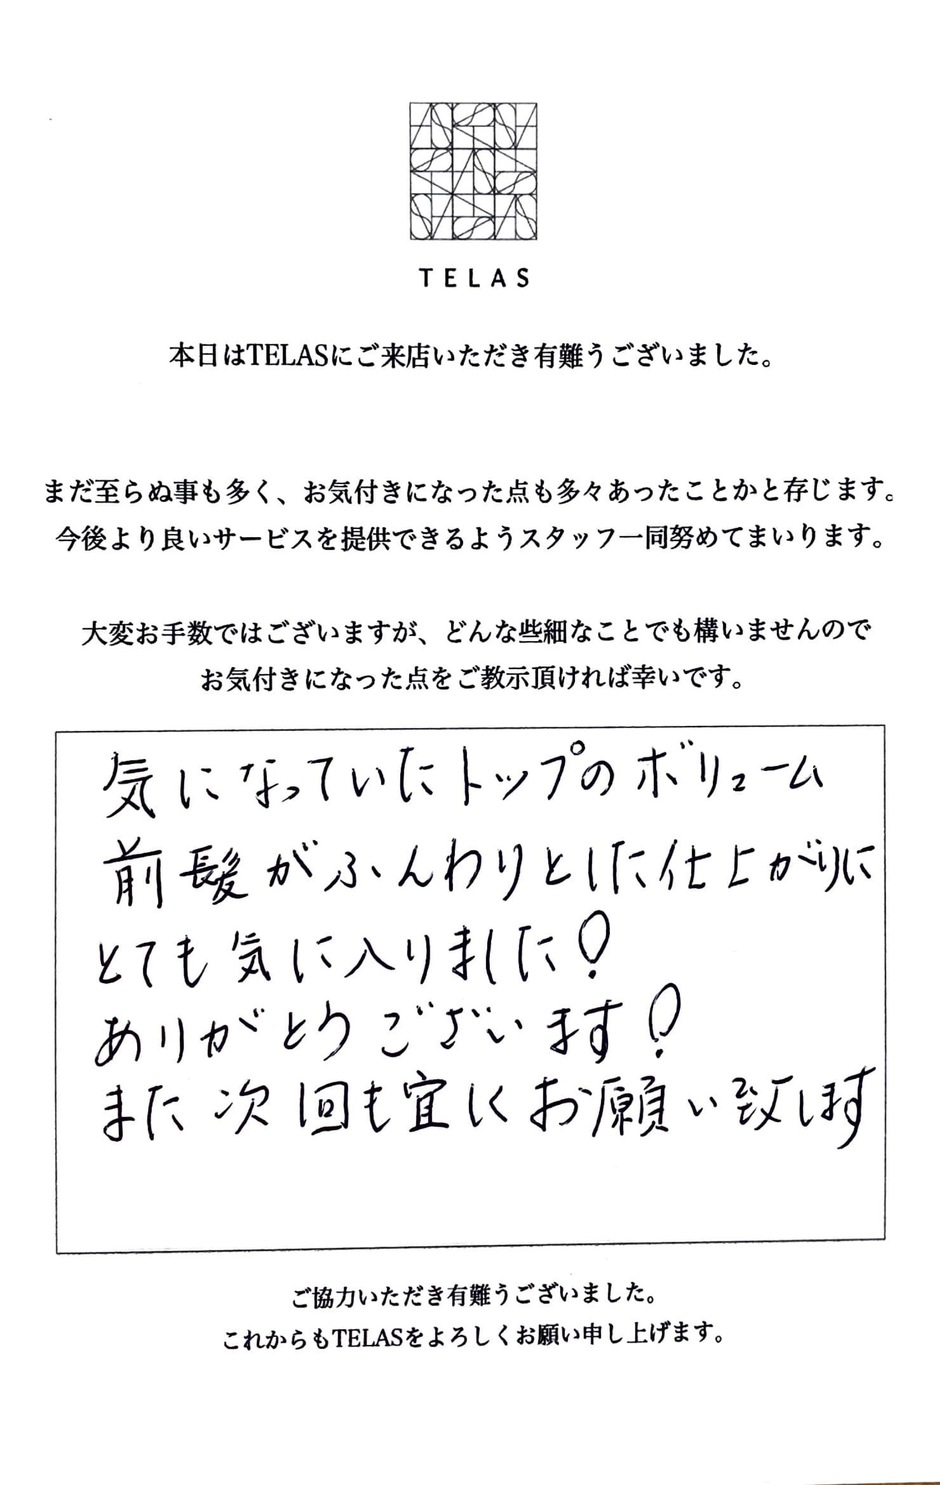 TELAS
本日はTELASにご来店いただき有難うございました。
まだ至らぬ事も多く、お気付きになった点も多々あったことかと存じます。
今後より良いサービスを提供できるようスタッフ一同努めてまいります。
大変お手数ではございますが、どんな些細なことでも構いませんので
お気付きになった点をご教示頂ければ幸いです。
気になっていたトップのボリューム
前髪がふんわりとした仕上がりに
とても気に入りました!
ありがとうございます!
また次回も宜しくお願い致します
ご協力いただき有難うございました。
これからもTELASをよろしくお願い申し上げます。